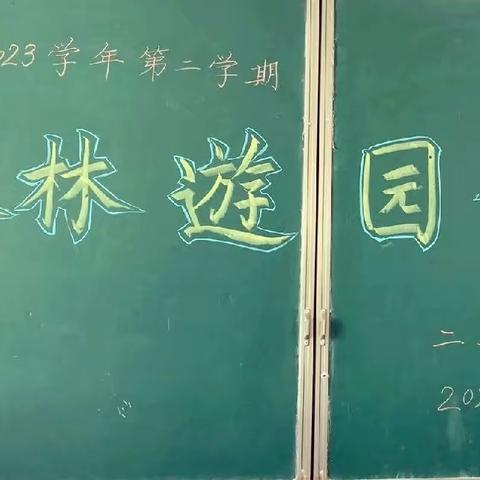 023学年第二学期
林遊园
二
202